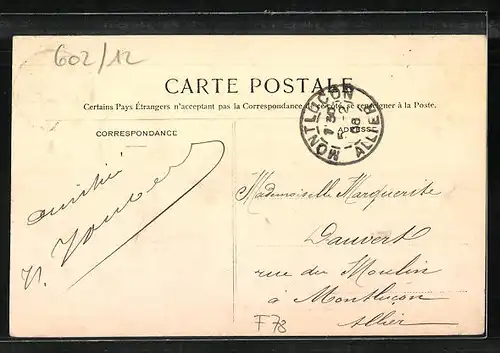 602/12
CARTE POSTALE
Certains Pays Étrangers n'acceptant pas la Correspondance de ce côté, se renseigner à la Poste.
CORRESPONDANCE
ADRESSE
MONTLUÇON
7 30
5 -2
08
ALLIER
amitié
Mademoiselle Marguerite
Dauvert
rue du Moulin
à Montluçon
Allier
F78